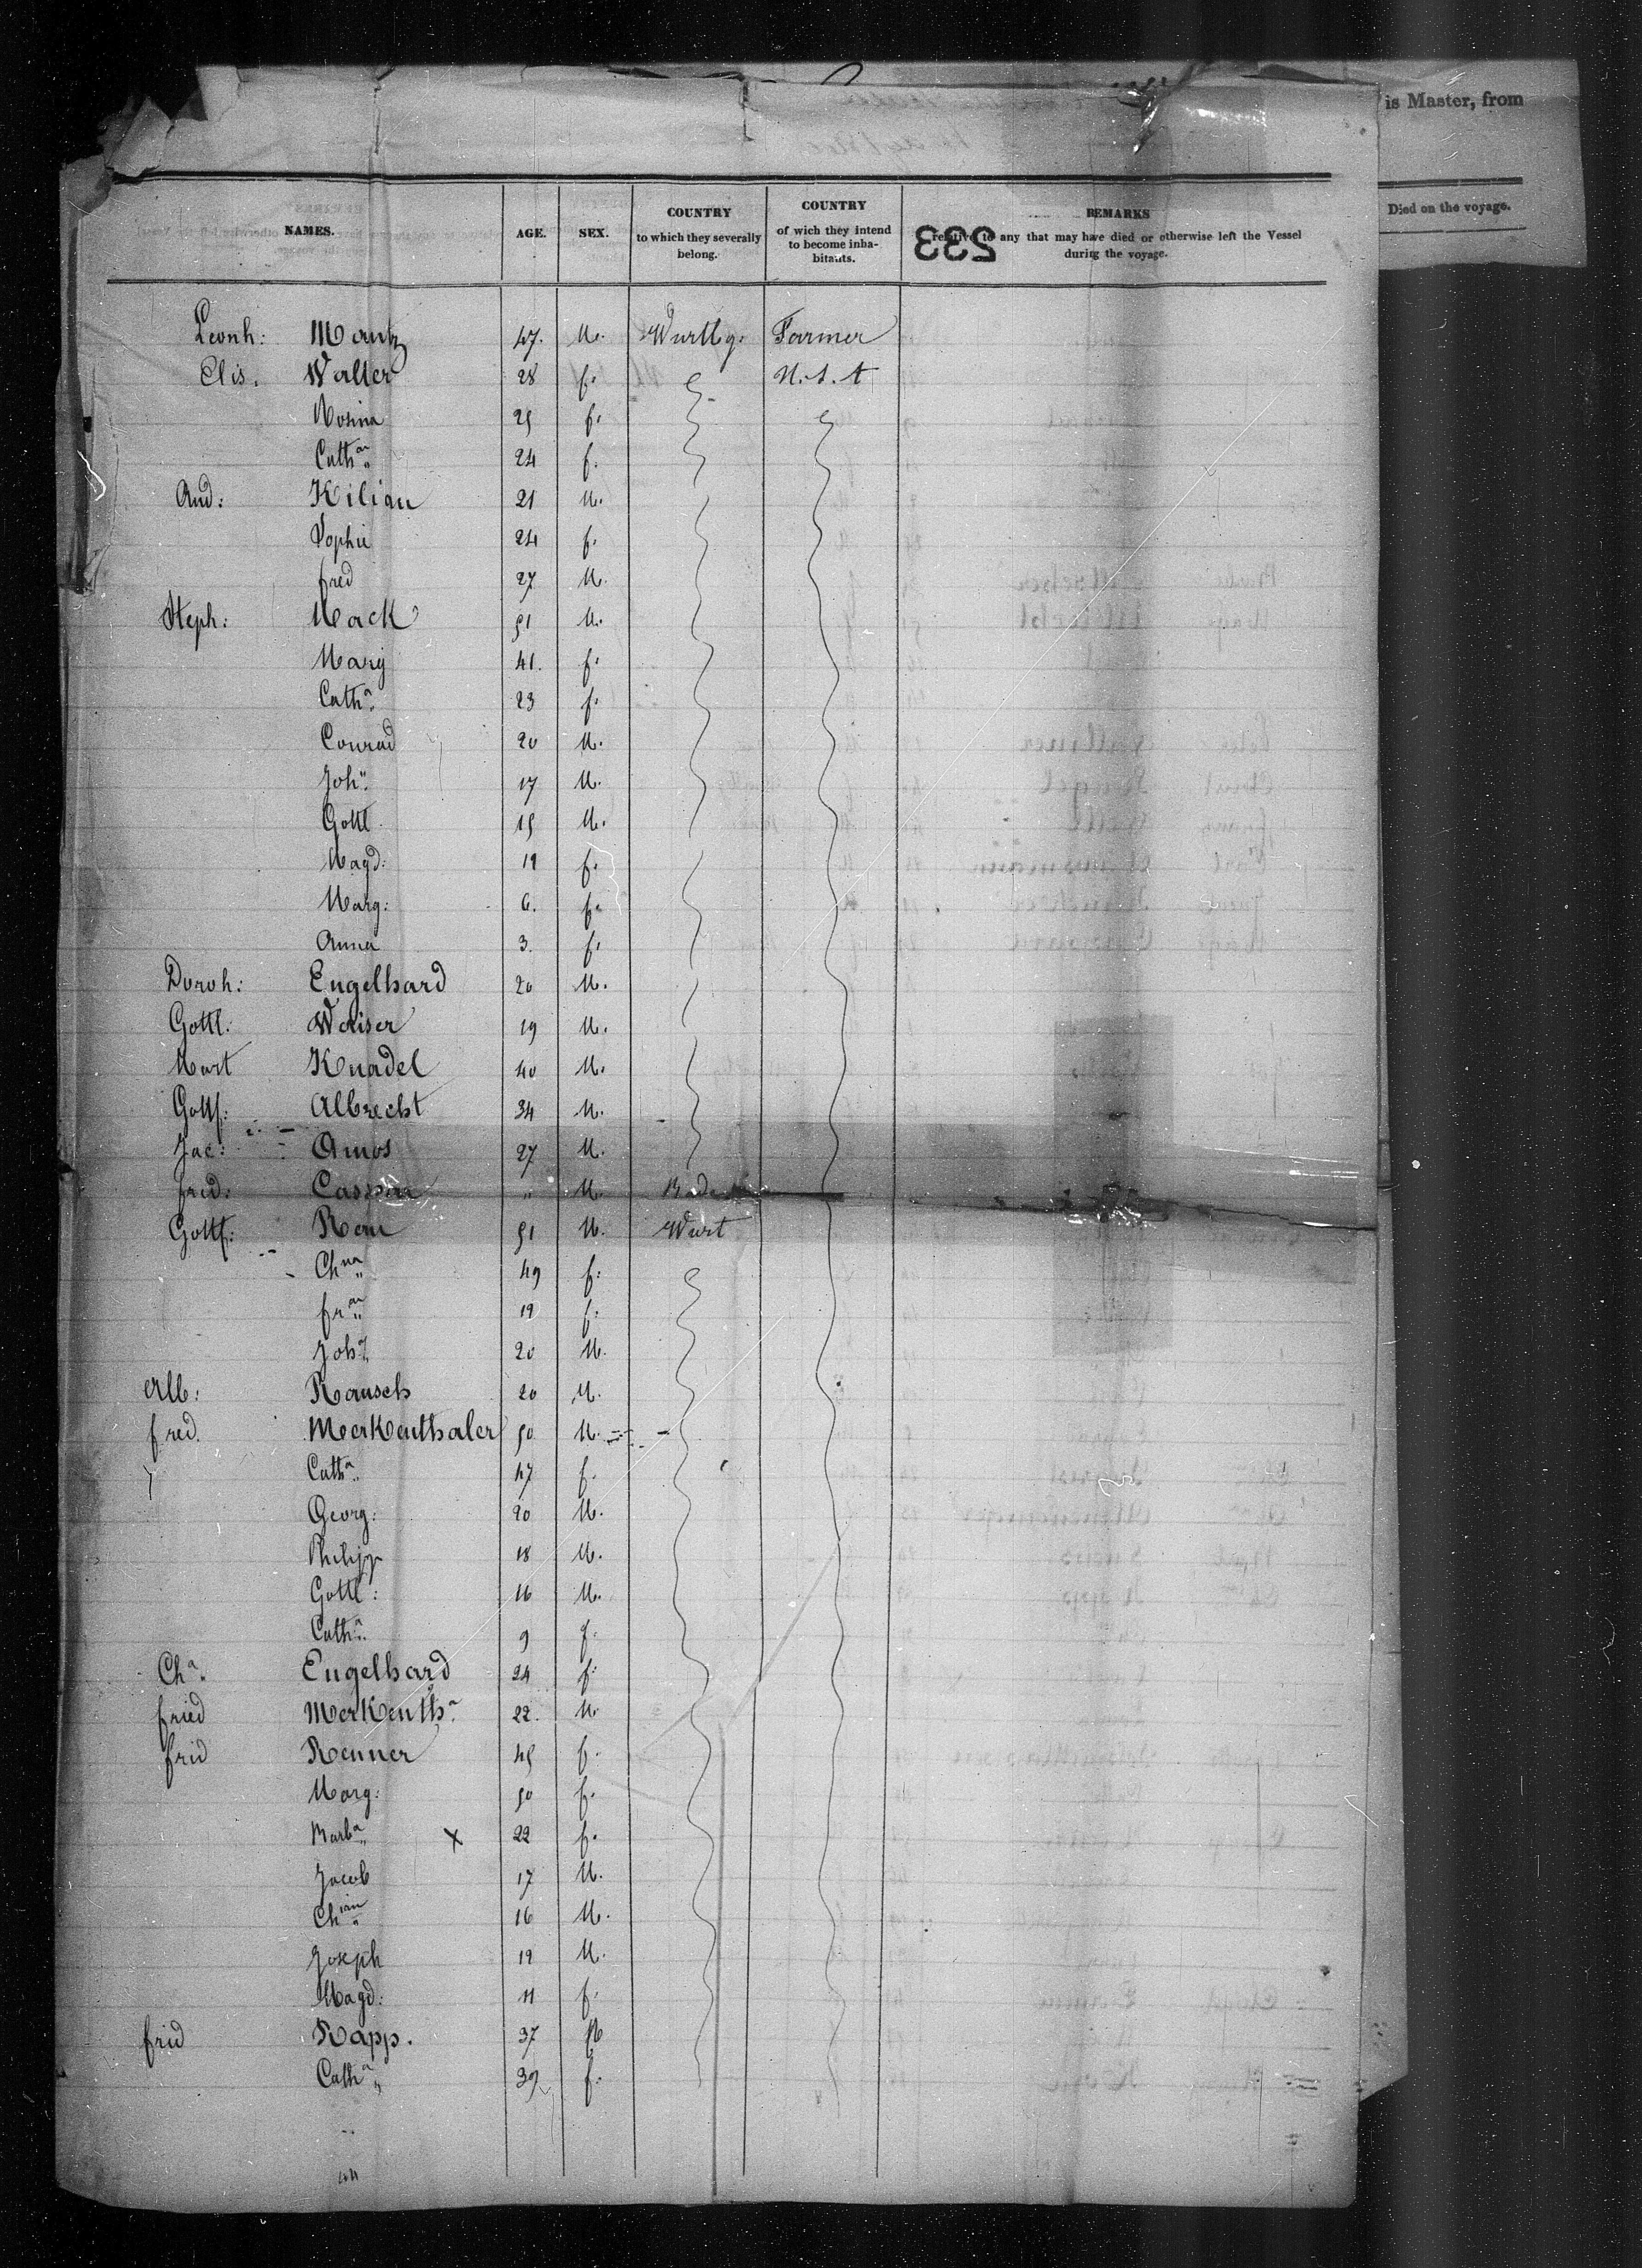 is Master, from
Died on the voyage.
NAMES. AGE. SEX. COUNTRY to which they severally belong. COUNTRY of wich they intend to become inhabitants. REMARKS relative to any that may have died or otherwise left the Vessel during the voyage.
233
Leonh: Mantz 47. M. Wurttg. Farmer
Elis. Walter 28 f. U.S.A
Rosina 25 f.
Catha. 24 f.
And: Kilian 21 M.
Sophie 24 f.
fred 27 M.
Steph: Mack 51 M.
Mary 41. f.
Catha. 23 f.
Conrad 20 M.
Johs. 17 M.
Gottl. 15 M.
Magd: 12 f.
Marg: 6. f.
Anna 3. f.
Doroh: Engelhard 20 M.
Gottl: Weiser 19 M.
Mart Knadel 40 M.
Gottf: Albrecht 34 M.
Jac: Amos 27 M.
fred: M. Bade
Gottf: Rau 51 M. Wurt
Chna. 49 f.
fran. 19 f.
Joh. 20 M.
Alb: Rausch 20 M.
fred. Merkenthaler 50 M.
Catha. 47 f.
Georg: 20 M.
Philipp 18 M.
Gottl: 16 M.
Catha. 9 f.
Cha. Engelhard 24 f.
fried Merkentha. 22. M.
frid Renner 45 f.
Marg: 50 f.
Barba. X 22 f.
Jacob 17 M.
Chian. 16 M.
Joseph 12 M.
Magd: 11 f.
frid Rapp. 37 M
Catha. 39 f.